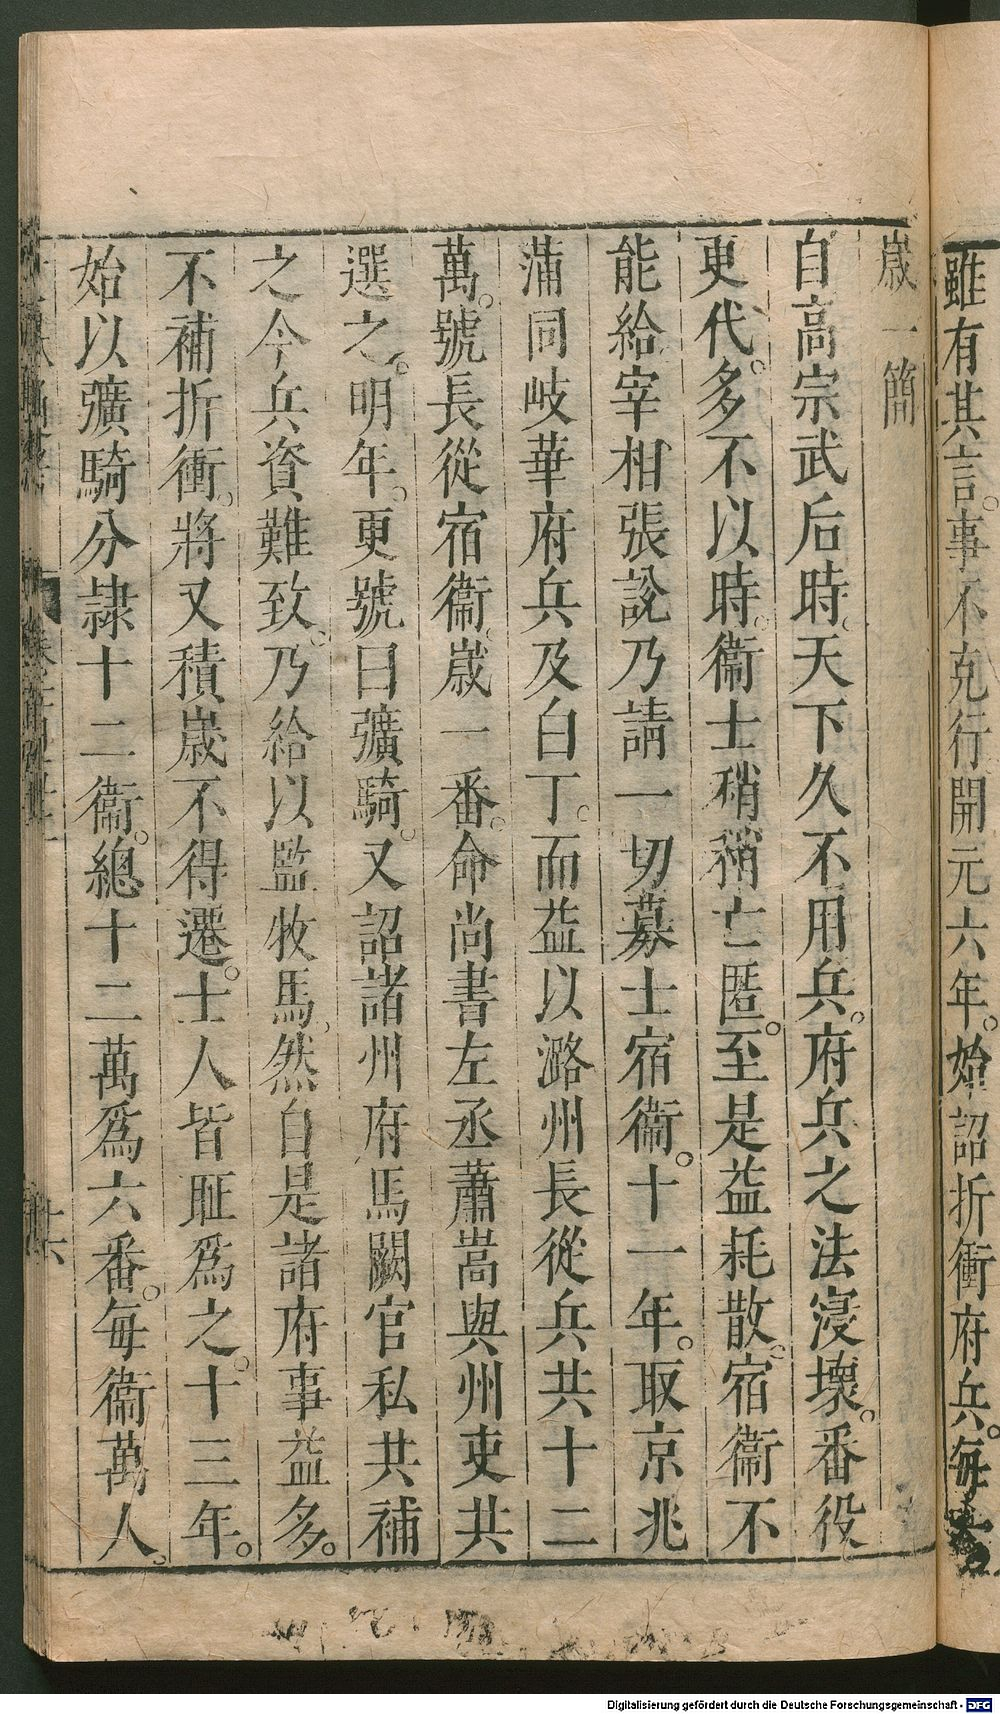 雖有其言。事不克行開元六年。始詔折衝府兵。每
歲一簡
自高宗武后時。天下久不用兵。府兵之法寖壞。番役
更代。多不以時。衞士稍稍亡匿。至是益耗散。宿衞不
能給宰相張說乃請一切募士宿衞。十一年。取京兆
蒲同岐華府兵及白丁。而益以潞州長從兵共十二
萬。號長從宿衞。歲一番。命尚書左丞蕭嵩與州吏共
選之。明年。更號曰彍騎。又詔諸州府馬闕官私共補
之今兵資難致。乃給以監牧馬。然自是諸府事益多。
不補折衝。將又積歲不得遷。士人皆恥爲之。十三年。
始以彍騎分隸十二衞。總十二萬爲六番。每衞萬人。
Digitalisierung gefördert durch die Deutsche Forschungsgemeinschaft - DFG